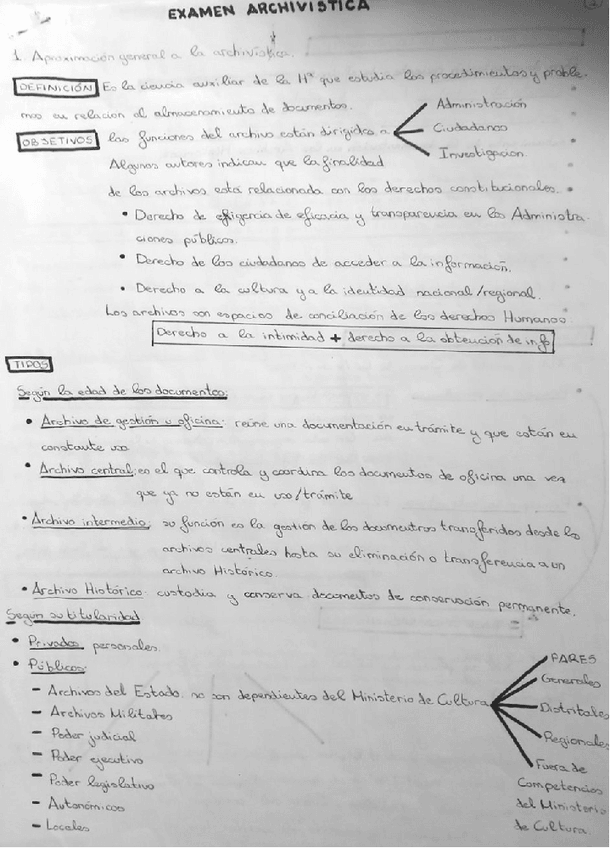 EXAMEN ARCHIVISTICA
1. Aproximación general a la archivística.
DEFINICIÓN Es la ciencia auxiliar de la Hª que estudia los procedimientos y proble-
mas en relación al almacenamiento de documentos.
OBJETIVOS las funciones del archivo están dirigidas a
Administración
Ciudadanos
Investigacion
Algunos autores indican que la finalidad
de los archivos está relacionada con los derechos constitucionales.
• Derecho de de eficacia y transparencia en las Administra-
ciones públicas.
• Derecho de los ciudadanos de acceder a la información.
• Derecho a la cultura y a la identidad nacional/regional.
Los archivos son espacios de conciliación de los derechos Humanos
Derecho a la intimidad + derecho a la obtención de inf
TIPOS
Según la edad de los documentos:
• Archivo de gestión u oficina: reúne una documentación en trámite y que están en
constante uso
• Archivo central: es el que controla y coordina los documentos de oficina una vez
que ya no están en uso/trámite
• Archivo intermedio: su función es la gestión de los documentos transferidos desde los
archivos centrales hasta su eliminación o transferencia a un
archivo Histórico.
• Archivo Histórico: custodia y conserva documentos de conservación permanente.
Según su titularidad
• Privados: personales.
• Públicos:
- Archivos del Estado: no son dependientes del Ministerio de Cultura
PARES
Generales
Distritales
Regionales
Fuera de
Competencias
del Ministerio
de Cultura.
- Archivos Militares
- Poder judicial
- Poder ejecutivo
- Poder legislativo
- Autonómicos
- Locales